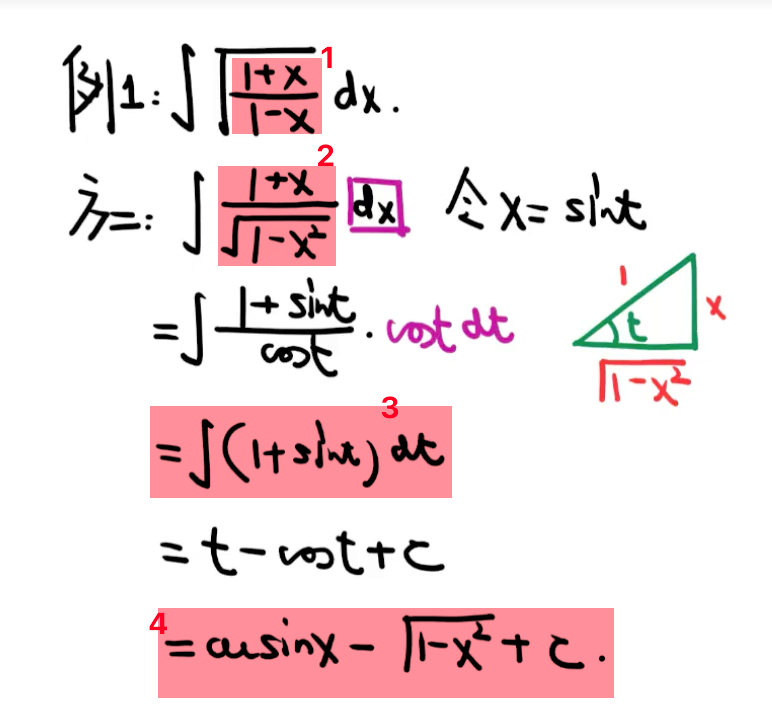 例1: ∫ √((1+x)/(1-x)) dx.
1
方二: ∫ (1+x)/√(1-x²) dx 令 x = sint
2
= ∫ (1+sint)/cost · cost dt
1
t
x
√(1-x²)
= ∫ (1+sint) dt
3
= t - cost + c
4
= arcsinx - √(1-x²) + c.